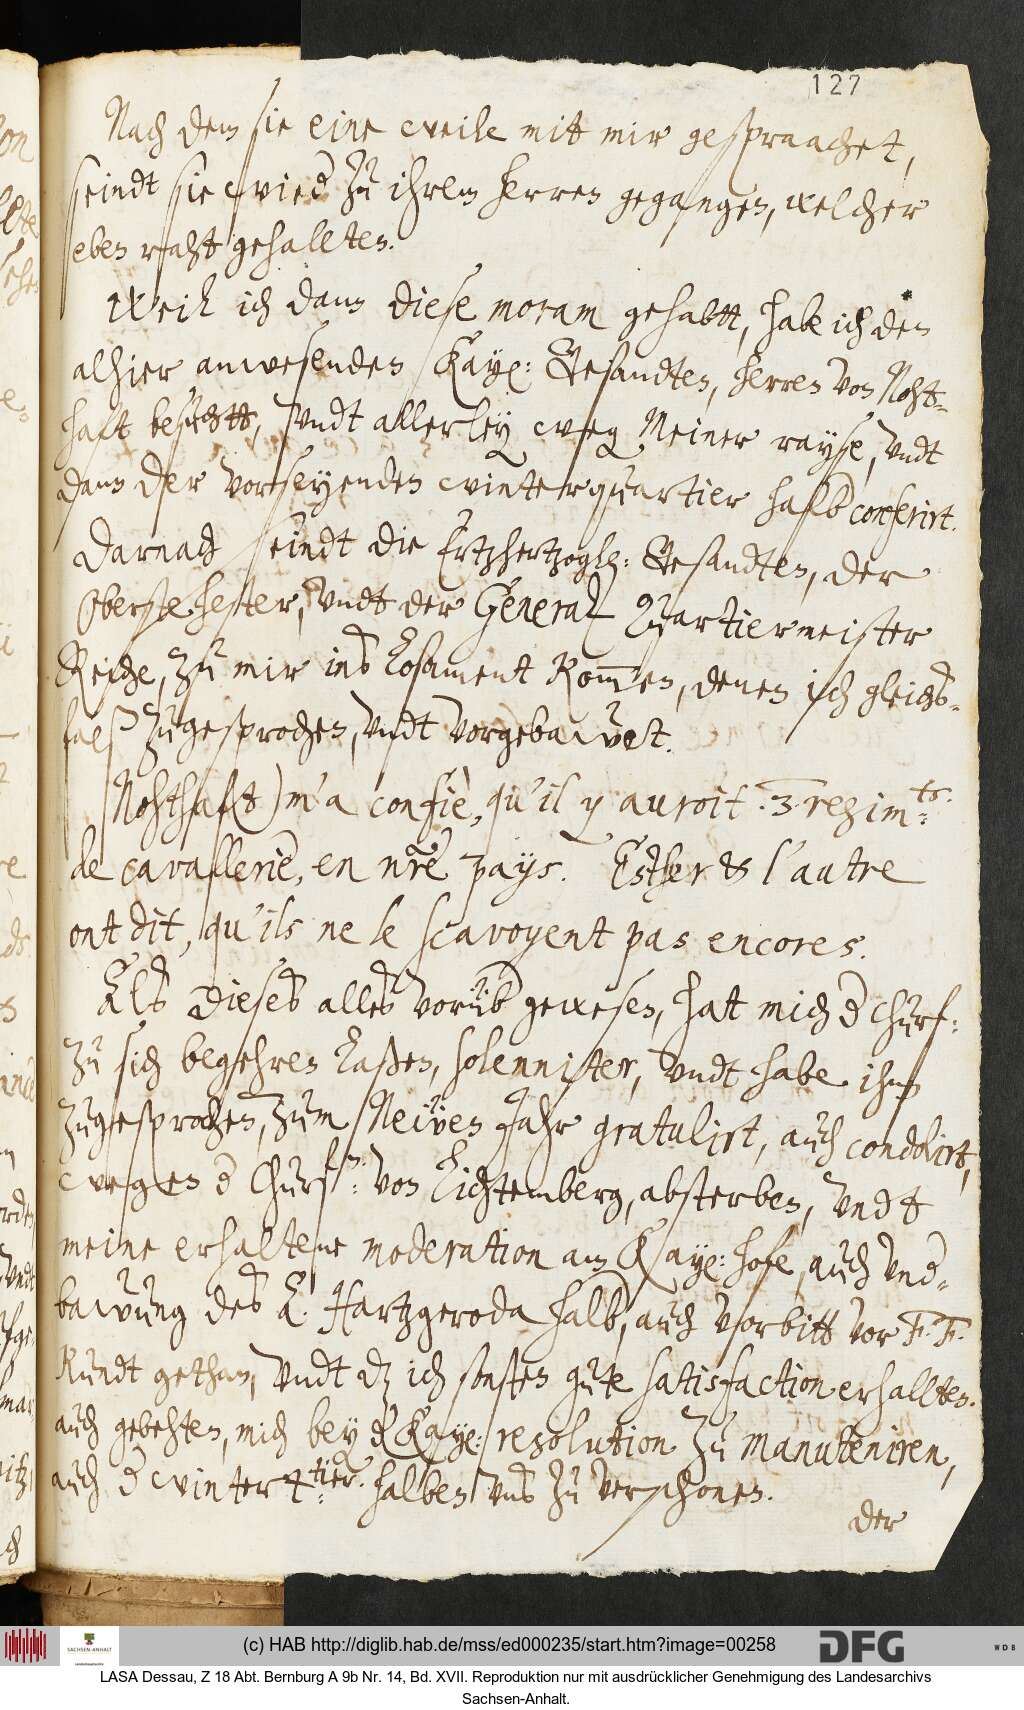 127
Nach dem sie eine weile mit mir gespraachet,
seindt sie wied zu ihrem herren gegangen, welcher
eben raht gehallten.
Weil ich dann diese moram gehabtt, habe ich den
alhier anwesenden Kay: Gesandten, herren von Noht-
haft besuchtt, undt allerley weg meiner rayse, undt
dann der vorseyenden winterquartier halb conferirt.
Darnach seindt die Ertzhertzogl: Gesandten, der
Oberste hester, undt der General Quartiermeister
Reiche, zu mir ins losament kommen, denen ich gleichs-
falß zugesprochen, undt vorgebawet.
Nohthaf(t) m'a confiè, qu'il y auroit .3. regim:ts.
de cavallerie, en nre pays. Esther & l'autre
ont dit, qu'ils ne le scavoyent pas encores.
Als dieses alles vorüb gewesen, hat mich d Churf:
zu sich begehren laßen, solenniter, undt habe ihm
zugesprochen, zum Neuen Jahr gratulirt, auch condolirt,
wegen d Churf:n: von Lichtemberg, absterben, undt
meine erhaltene moderation am Kay: hofe, auch und-
bawung des A. Hartzgeroda halb, auch vorbitt vor F. F.
kundt gethan, undt dz ich sonsten gute satisfaction erhallten.
auch gebehten, mich bey d Kay: resolution zu manuteniren,
auch d winter 4:tier. halben uns zu verschonen.
der
(c) HAB http://diglib.hab.de/mss/ed000235/start.htm?image=00258
SACHSEN-ANHALT
DFG
WDB
LASA Dessau, Z 18 Abt. Bernburg A 9b Nr. 14, Bd. XVII. Reproduktion nur mit ausdrücklicher Genehmigung des Landesarchivs
Sachsen-Anhalt.